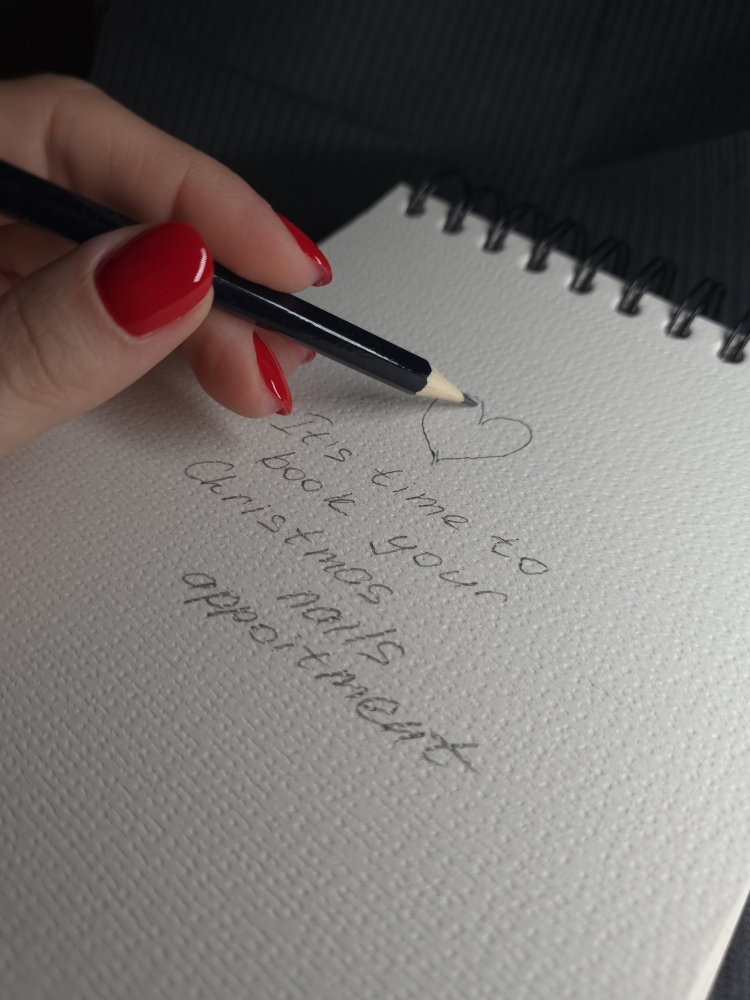 It's time to
book your
Christmas
nails
appoitment